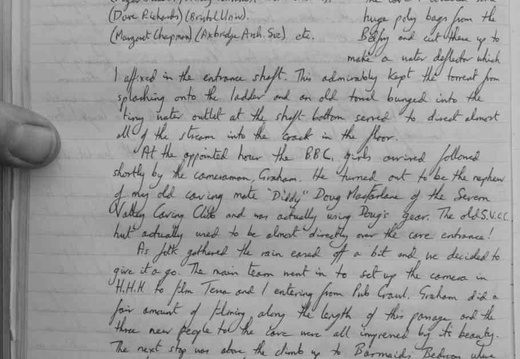 (Dave Richards) (Bristol Univ.)
huge poly bags from the
(Margaret Chapman) (Axbridge Arch. Soc) etc.
and cut these up to
make a water deflector which
I affixed in the entrance shaft. This admirably kept the torrent from
splashing onto the ladder and an old towel bunged into the
tiny water outlet at the shaft bottom served to direct almost
all of the stream into the crack in the floor.
At the appointed hour the B.B.C. girls arrived followed
shortly by the cameraman, Graham. He turned out to be the nephew
of my old caving mate "Diddy" Doug Macfarlane of the Severn
Valley Caving Club and was actually using Doug's gear. The old S.V.C.C.
hut actually used to be almost directly over the cave entrance!
As folk gathered the rain eased off a bit and we decided to
give it a go. The main team went in to set up the camera in
H.H.H. to film Tena and I entering from Pub Crawl. Graham did a
fair amount of filming along the length of this passage and the
three new people to the cave were all impressed by its beauty.
The next stop was above the climb up to Barmaids Bedroom where